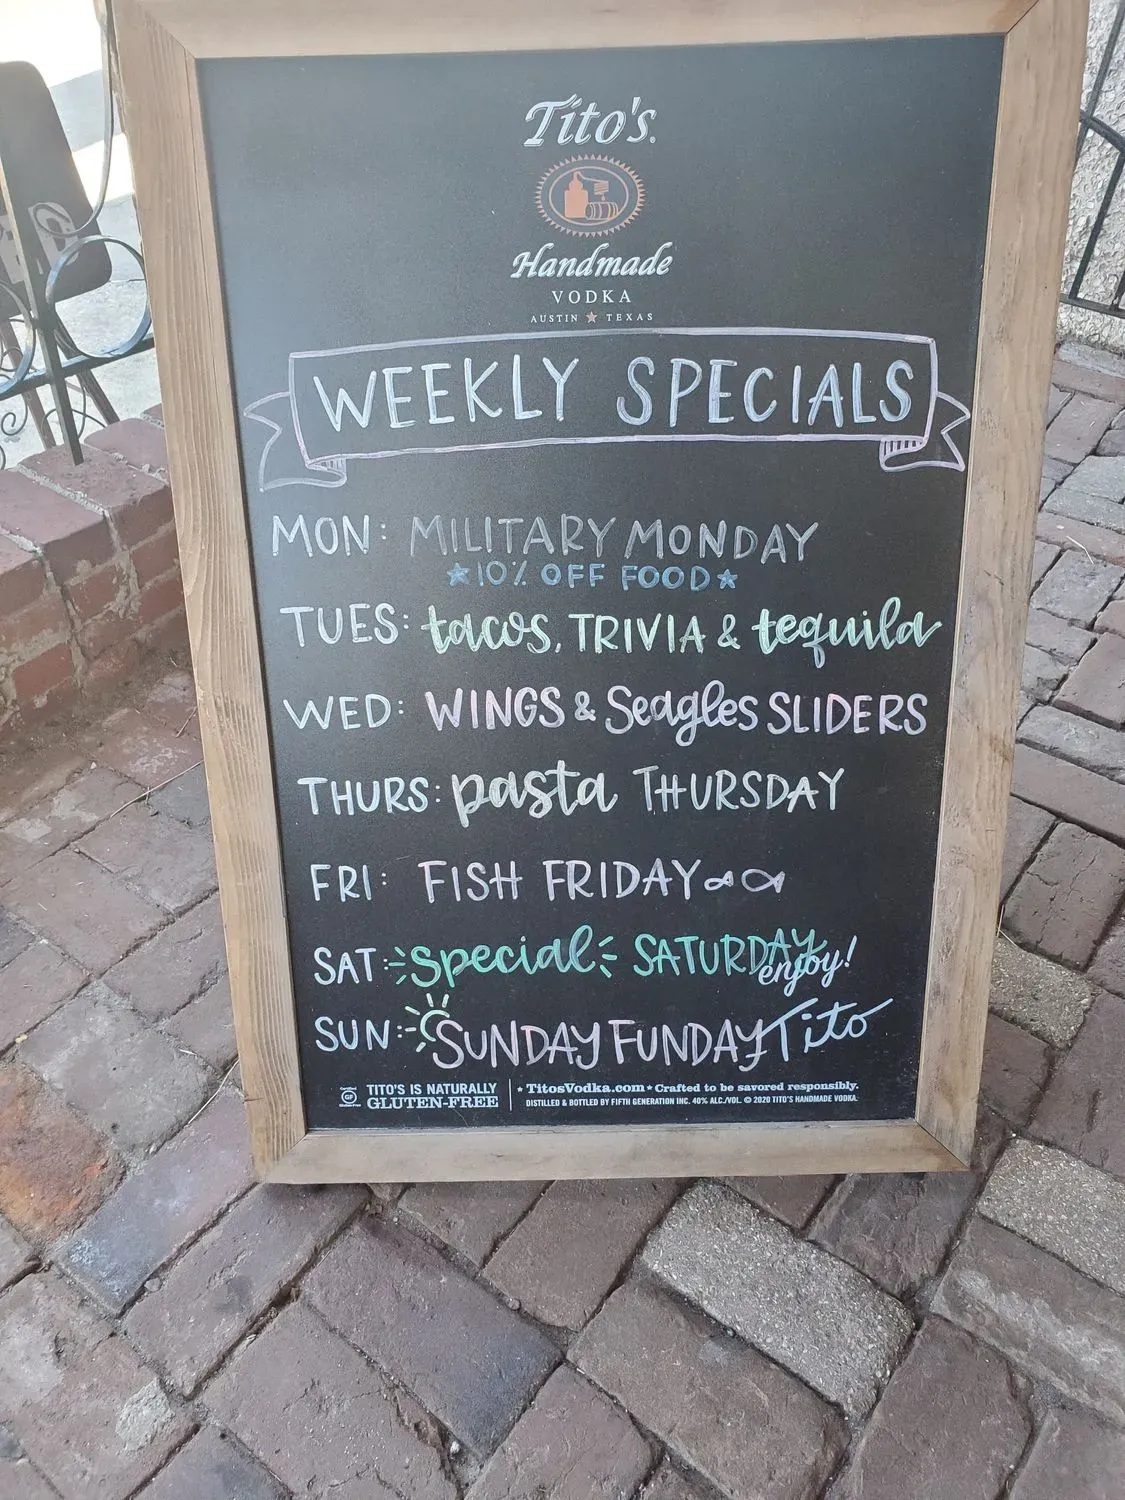 Tito's.
Handmade
VODKA
AUSTIN ★ TEXAS
WEEKLY SPECIALS
MON: MILITARY MONDAY
★10% OFF FOOD★
TUES: tacos, TRIVIA & tequila
WED: WINGS & Seagles SLIDERS
THURS: pasta THURSDAY
FRI: FISH FRIDAY
SAT: Special SATURDAY
enjoy!
SUN: SUNDAY FUNDAY Tito
GF
TITO'S IS NATURALLY
GLUTEN-FREE
★ TitosVodka.com ★ Crafted to be savored responsibly.
DISTILLED & BOTTLED BY FIFTH GENERATION INC. 40% ALC./VOL. © 2020 TITO'S HANDMADE VODKA.